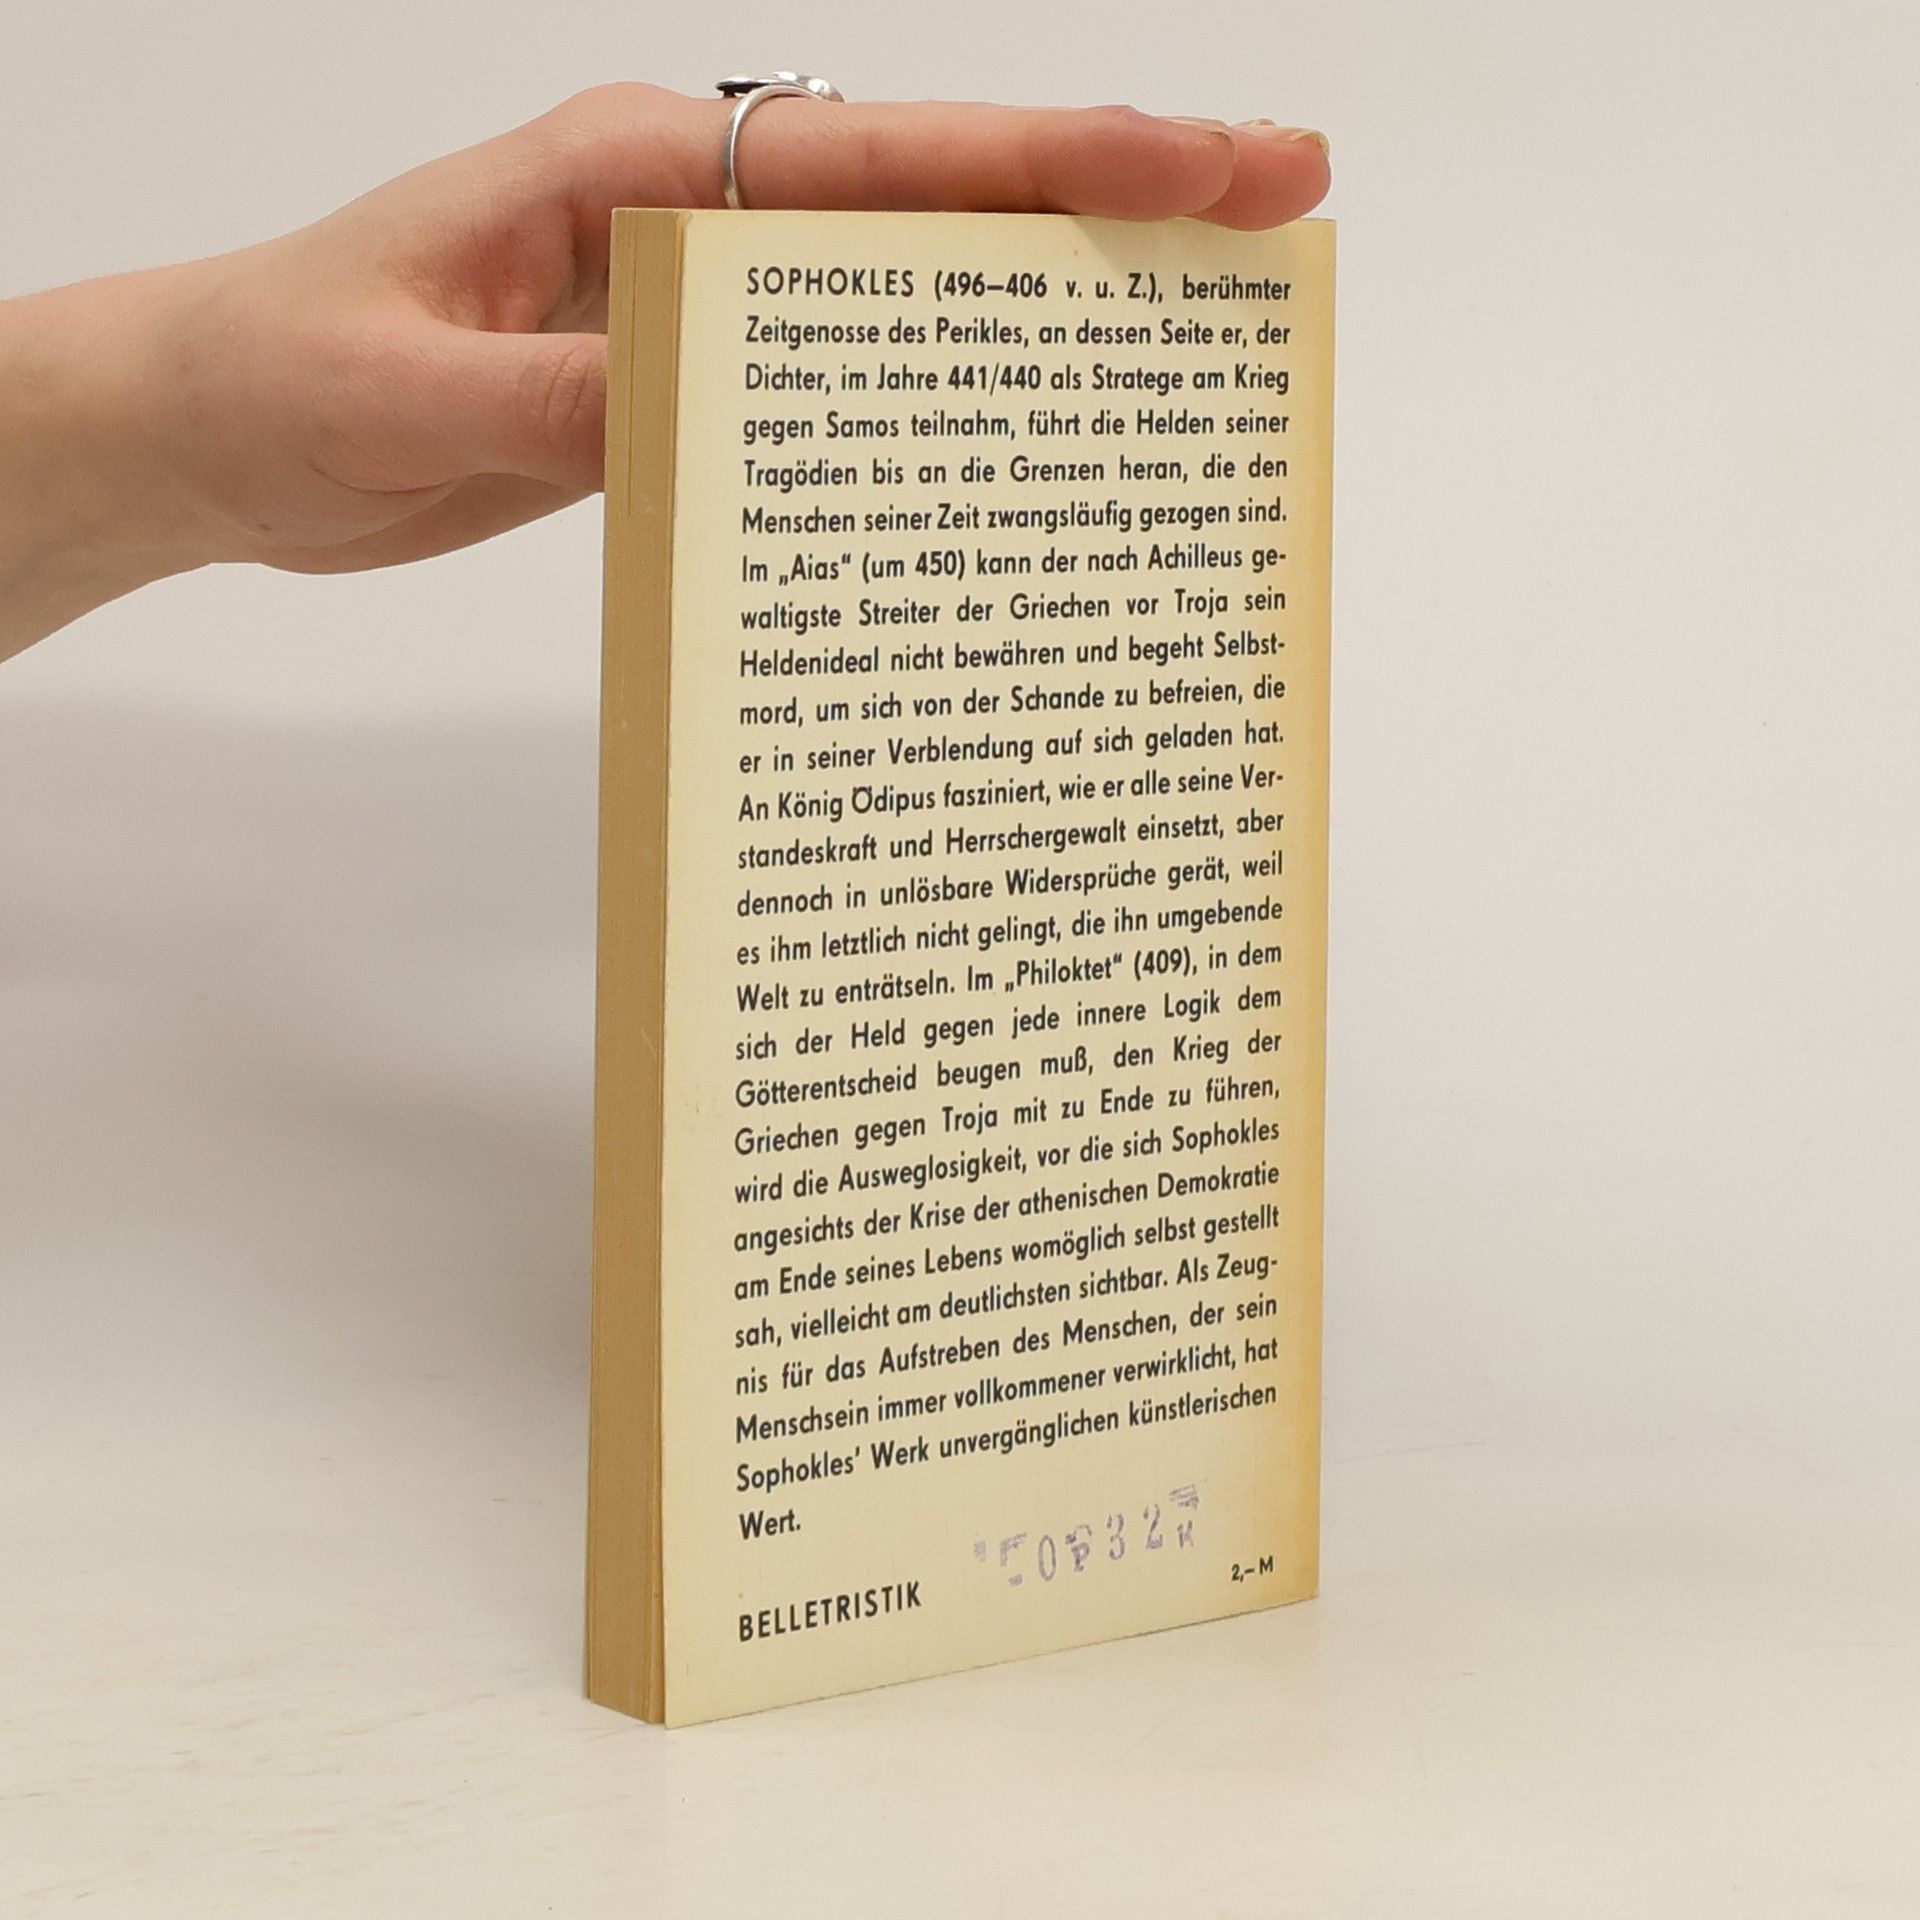 SOPHOKLES (496–406 v. u. Z.), berühmter
Zeitgenosse des Perikles, an dessen Seite er, der
Dichter, im Jahre 441/440 als Stratege am Krieg
gegen Samos teilnahm, führt die Helden seiner
Tragödien bis an die Grenzen heran, die den
Menschen seiner Zeit zwangsläufig gezogen sind.
Im „Aias“ (um 450) kann der nach Achilleus ge-
waltigste Streiter der Griechen vor Troja sein
Heldenideal nicht bewähren und begeht Selbst-
mord, um sich von der Schande zu befreien, die
er in seiner Verblendung auf sich geladen hat.
An König Ödipus fasziniert, wie er alle seine Ver-
standeskraft und Herrschergewalt einsetzt, aber
dennoch in unlösbare Widersprüche gerät, weil
es ihm letztlich nicht gelingt, die ihn umgebende
Welt zu enträtseln. Im „Philoktet“ (409), in dem
sich der Held gegen jede innere Logik dem
Götterentscheid beugen muß, den Krieg der
Griechen gegen Troja mit zu Ende zu führen,
wird die Ausweglosigkeit, vor die sich Sophokles
angesichts der Krise der athenischen Demokratie
am Ende seines Lebens womöglich selbst gestellt
sah, vielleicht am deutlichsten sichtbar. Als Zeug-
nis für das Aufstreben des Menschen, der sein
Menschsein immer vollkommener verwirklicht, hat
Sophokles’ Werk unvergänglichen künstlerischen
Wert.
BELLETRISTIK
2,– M